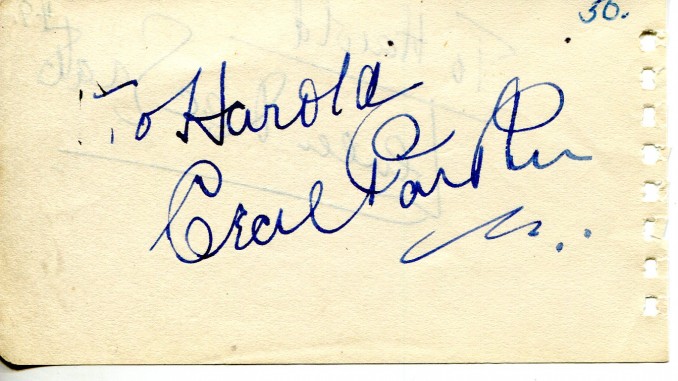 30.
To Harold
Cecil Parker